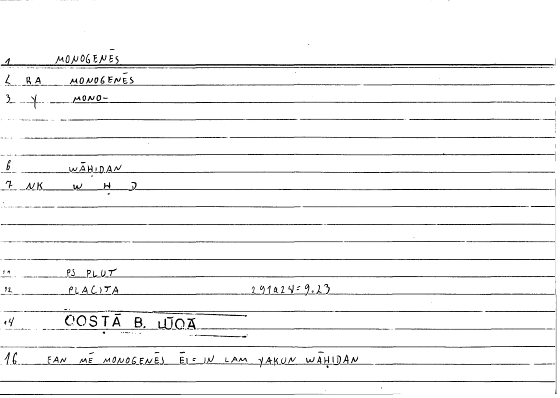 1 MONOGENĒS
2 RA MONOGENĒS
3 Y MONO-
6 WĀḤIDAN
7 NK W Ḥ D
11 PS PLUT
12 PLACITA 291A24=9.23
14 QOSṬĀ B. LŪQĀ
16 EAN MĒ MONOGENĒS ĒI= IN LAM YAKUN WĀḤIDAN